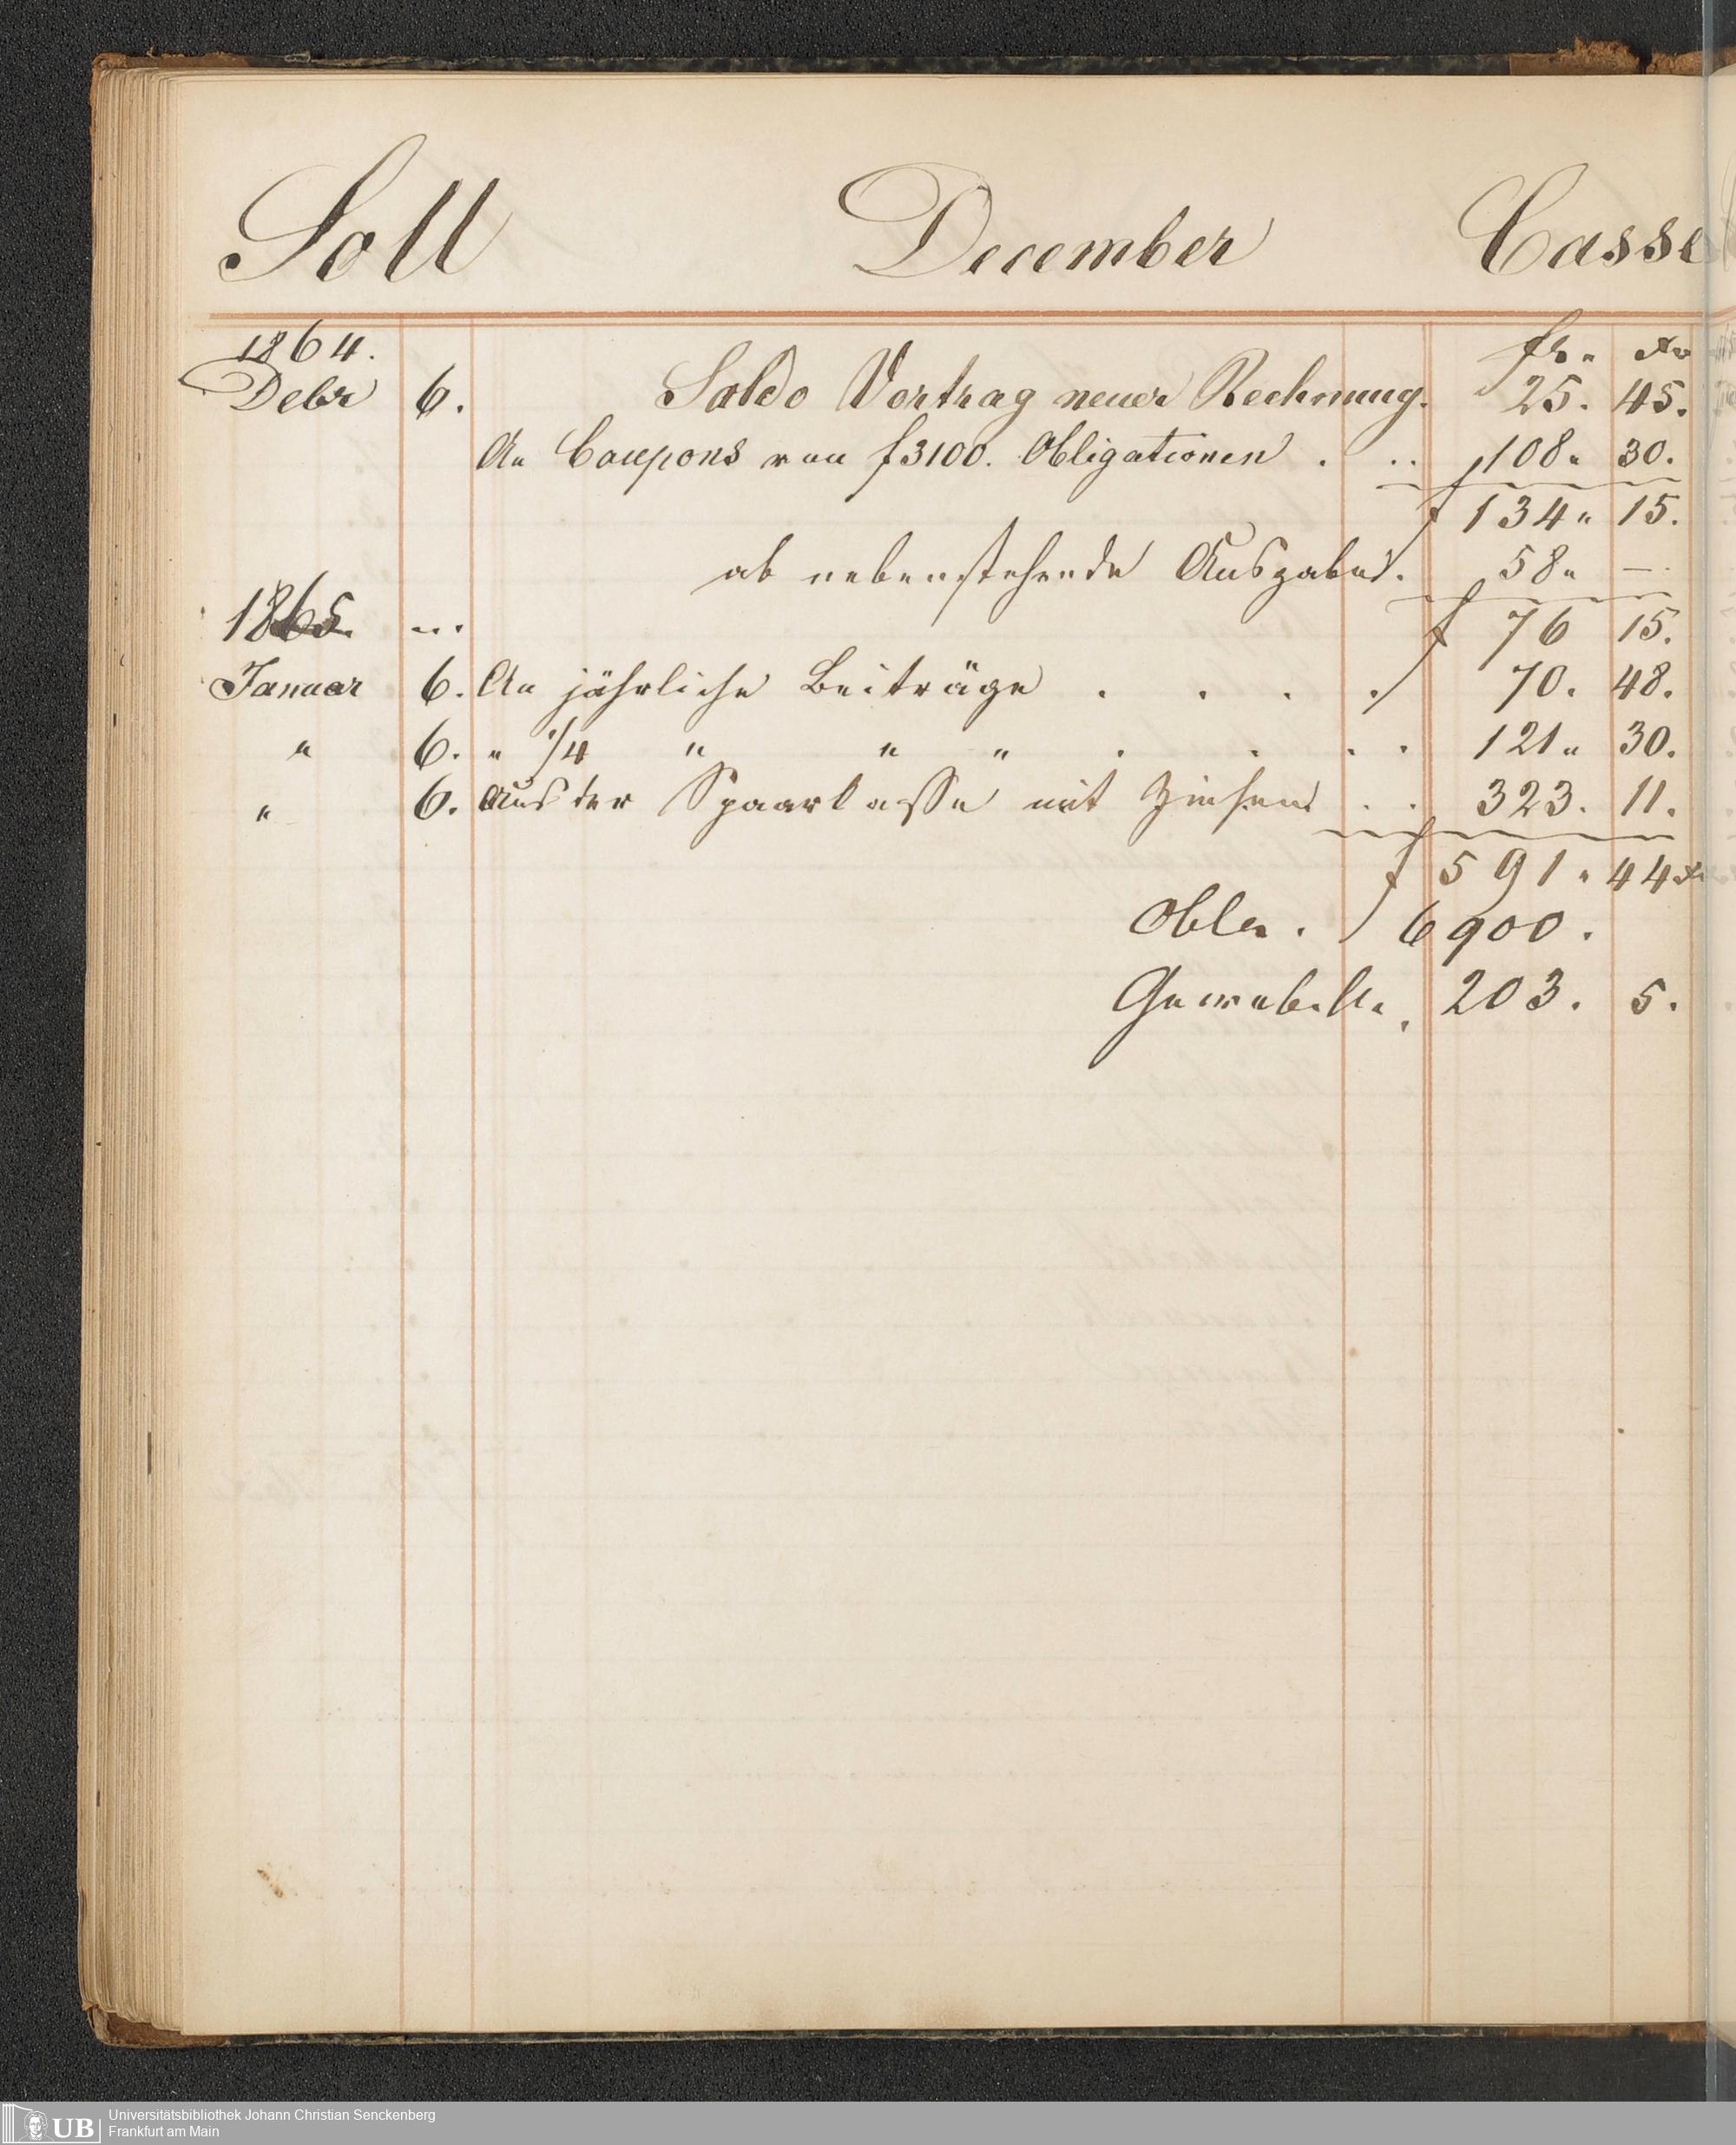 Soll December Casse
1864. fr. xr
Debr 6. Saldo Vortrag neuer Rechnung. 25. 45.
An Coupons von f 3100. Obligationen . .. 108 " 30.
f 134 " 15.
ab nebenstehende Ausgabe. 58 " —
1865. ... f 76 15.
Januar 6. An jährliche Beiträge . . . . 70. 48.
" 6. " 1/4 " " " . . . . 121 " 30.
" 6. Aus der Spaarkasse mit Zinsen . . 323. 11.
f 591 " 44 x
Obln. f 6900.
Gewerbek. 203. 5.
UB Universitätsbibliothek Johann Christian Senckenberg
Frankfurt am Main